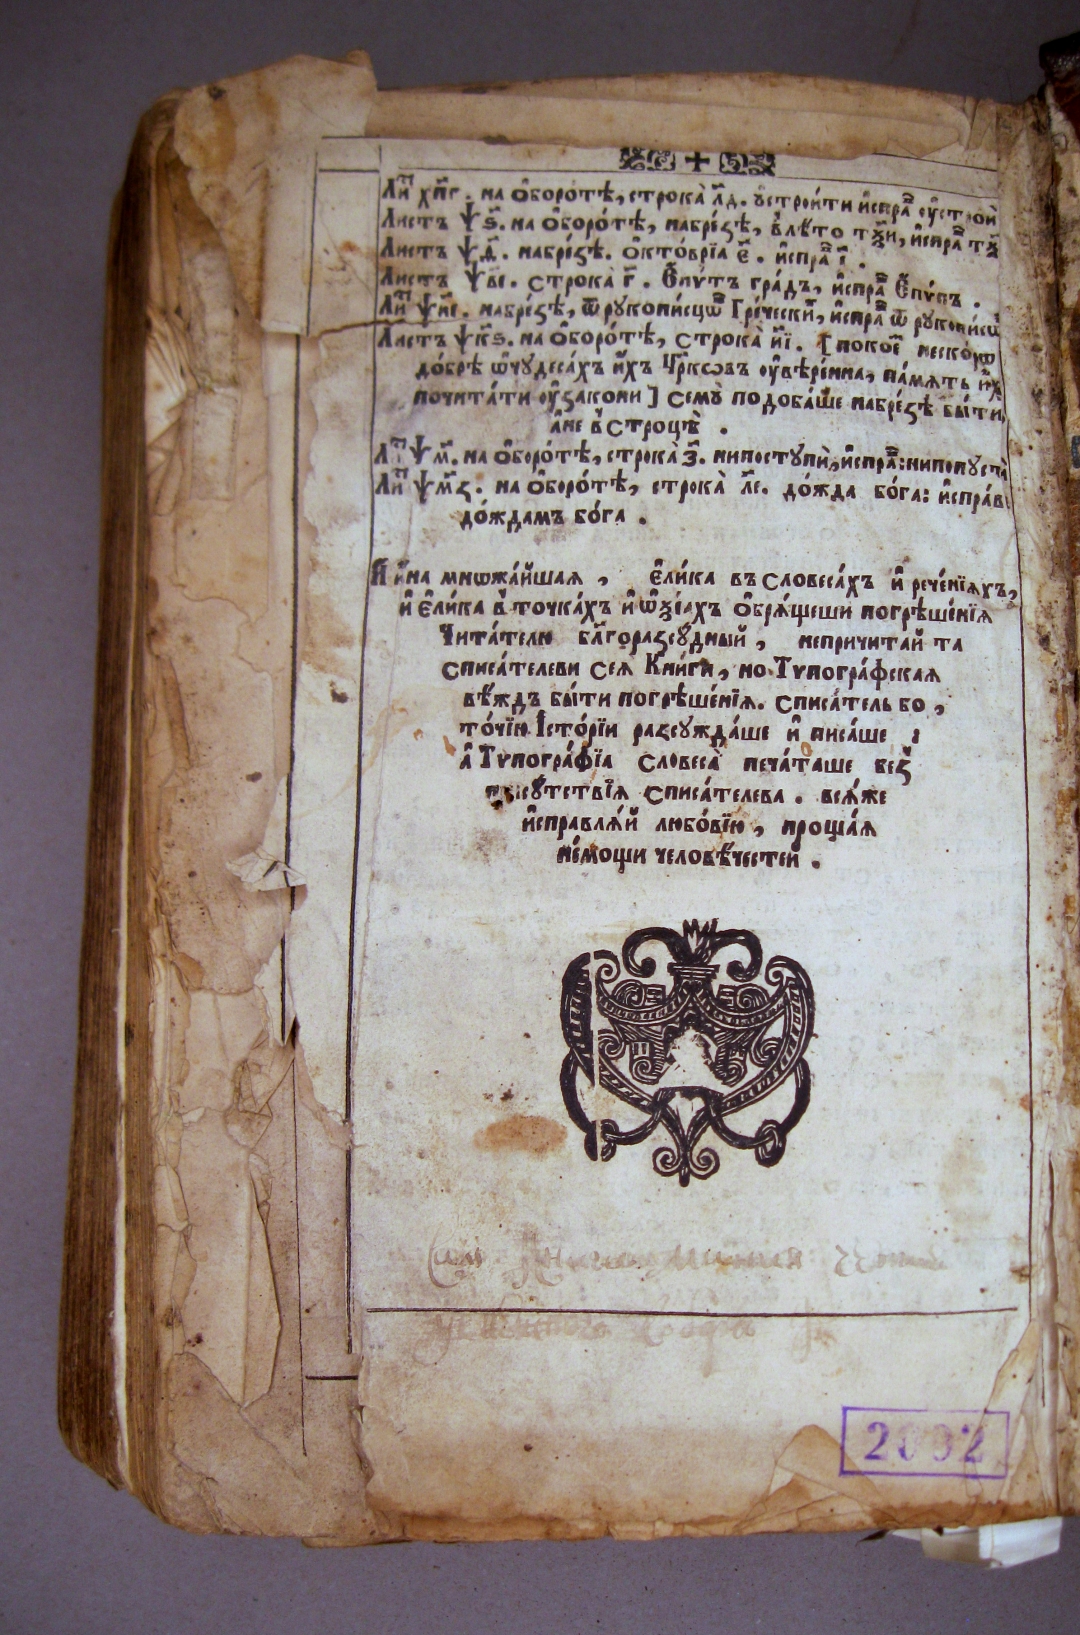 Ли҇ хн҃г. на ѻ҆боро́тѣ, строка̀ л҃д. ᲂу҆строи́ти и҆спра҇ ᲂу҆строй
Листъ ѱ҃ѕ. на ѻ҆боро́тѣ, набре́зѣ, в̾лѣ́то
Листъ ѱ҃д. набре́зѣ. ѻ҆кто́врїа є҃. и҆спра҇ г҃.
Листъ ѱ҃ві. строка̀ г҃. Є҆пу́тъ гра́дъ, и҆спра҇ Є҆пу́пъ.
Ли҇ набре́зѣ, ѿ рукопи́сцѡ҇ Гре́чески҇, и҆спра҇ ѿ рукопи́сѡ҇
Листъ ѱ҃кѕ. на ѻ҆боро́тѣ, строка̀ и҃і. [покое҇ неско́рѡ
до́брѣ ѡ҆чудеса́хъ и҆́хъ Ц҃рковъ ᲂу҆вѣре́нна, па́мять и҆́х
почита́ти ᲂу҆закони] семꙋ̀ подоба́ше набре́зѣ бы́ти,
а҆́не в̾строцѣ̀.
Ли҇ ѱ҃м. на ѻ҆боро́тѣ, строка̀ з҃. нипоступѝ, и҆спра҇: нипопуста̀
Ли҇ ѱ҃мз. на ѻ҆боро́тѣ, строка̀ л҃е. до́жда бо́га: и҆спра́в
до́ждамъ бо́га.
И҆ и҆́на мнѡжа́йшая, є҆ли́ка въ словеса́хъ и҆ рече́нїяхъ,
и҆ є҆ли́ка в̾ точка́хъ и҆ ѻ҆ѯі́ахъ ѻ҆бря́щеши погрѣше́нїя
Чита́телю бл҃горазсу́дный, непричитай та
списа́телеви сея̀ Кни́ги, но Тѵпогра́фская
вѣ́ждъ бы́ти погрѣше́нїя. списа́тель бо,
то́чїю І҆сто́рїи разсужда́ше и҆ писа́ше;
а҆ Тѵпогра́фїа словеса̀ печа́таше без̾
прису́тствїя списа́телева. вся́же
и҆справля́й любо́вїю, проща́я
не́мощи человѣ́честей.
2092